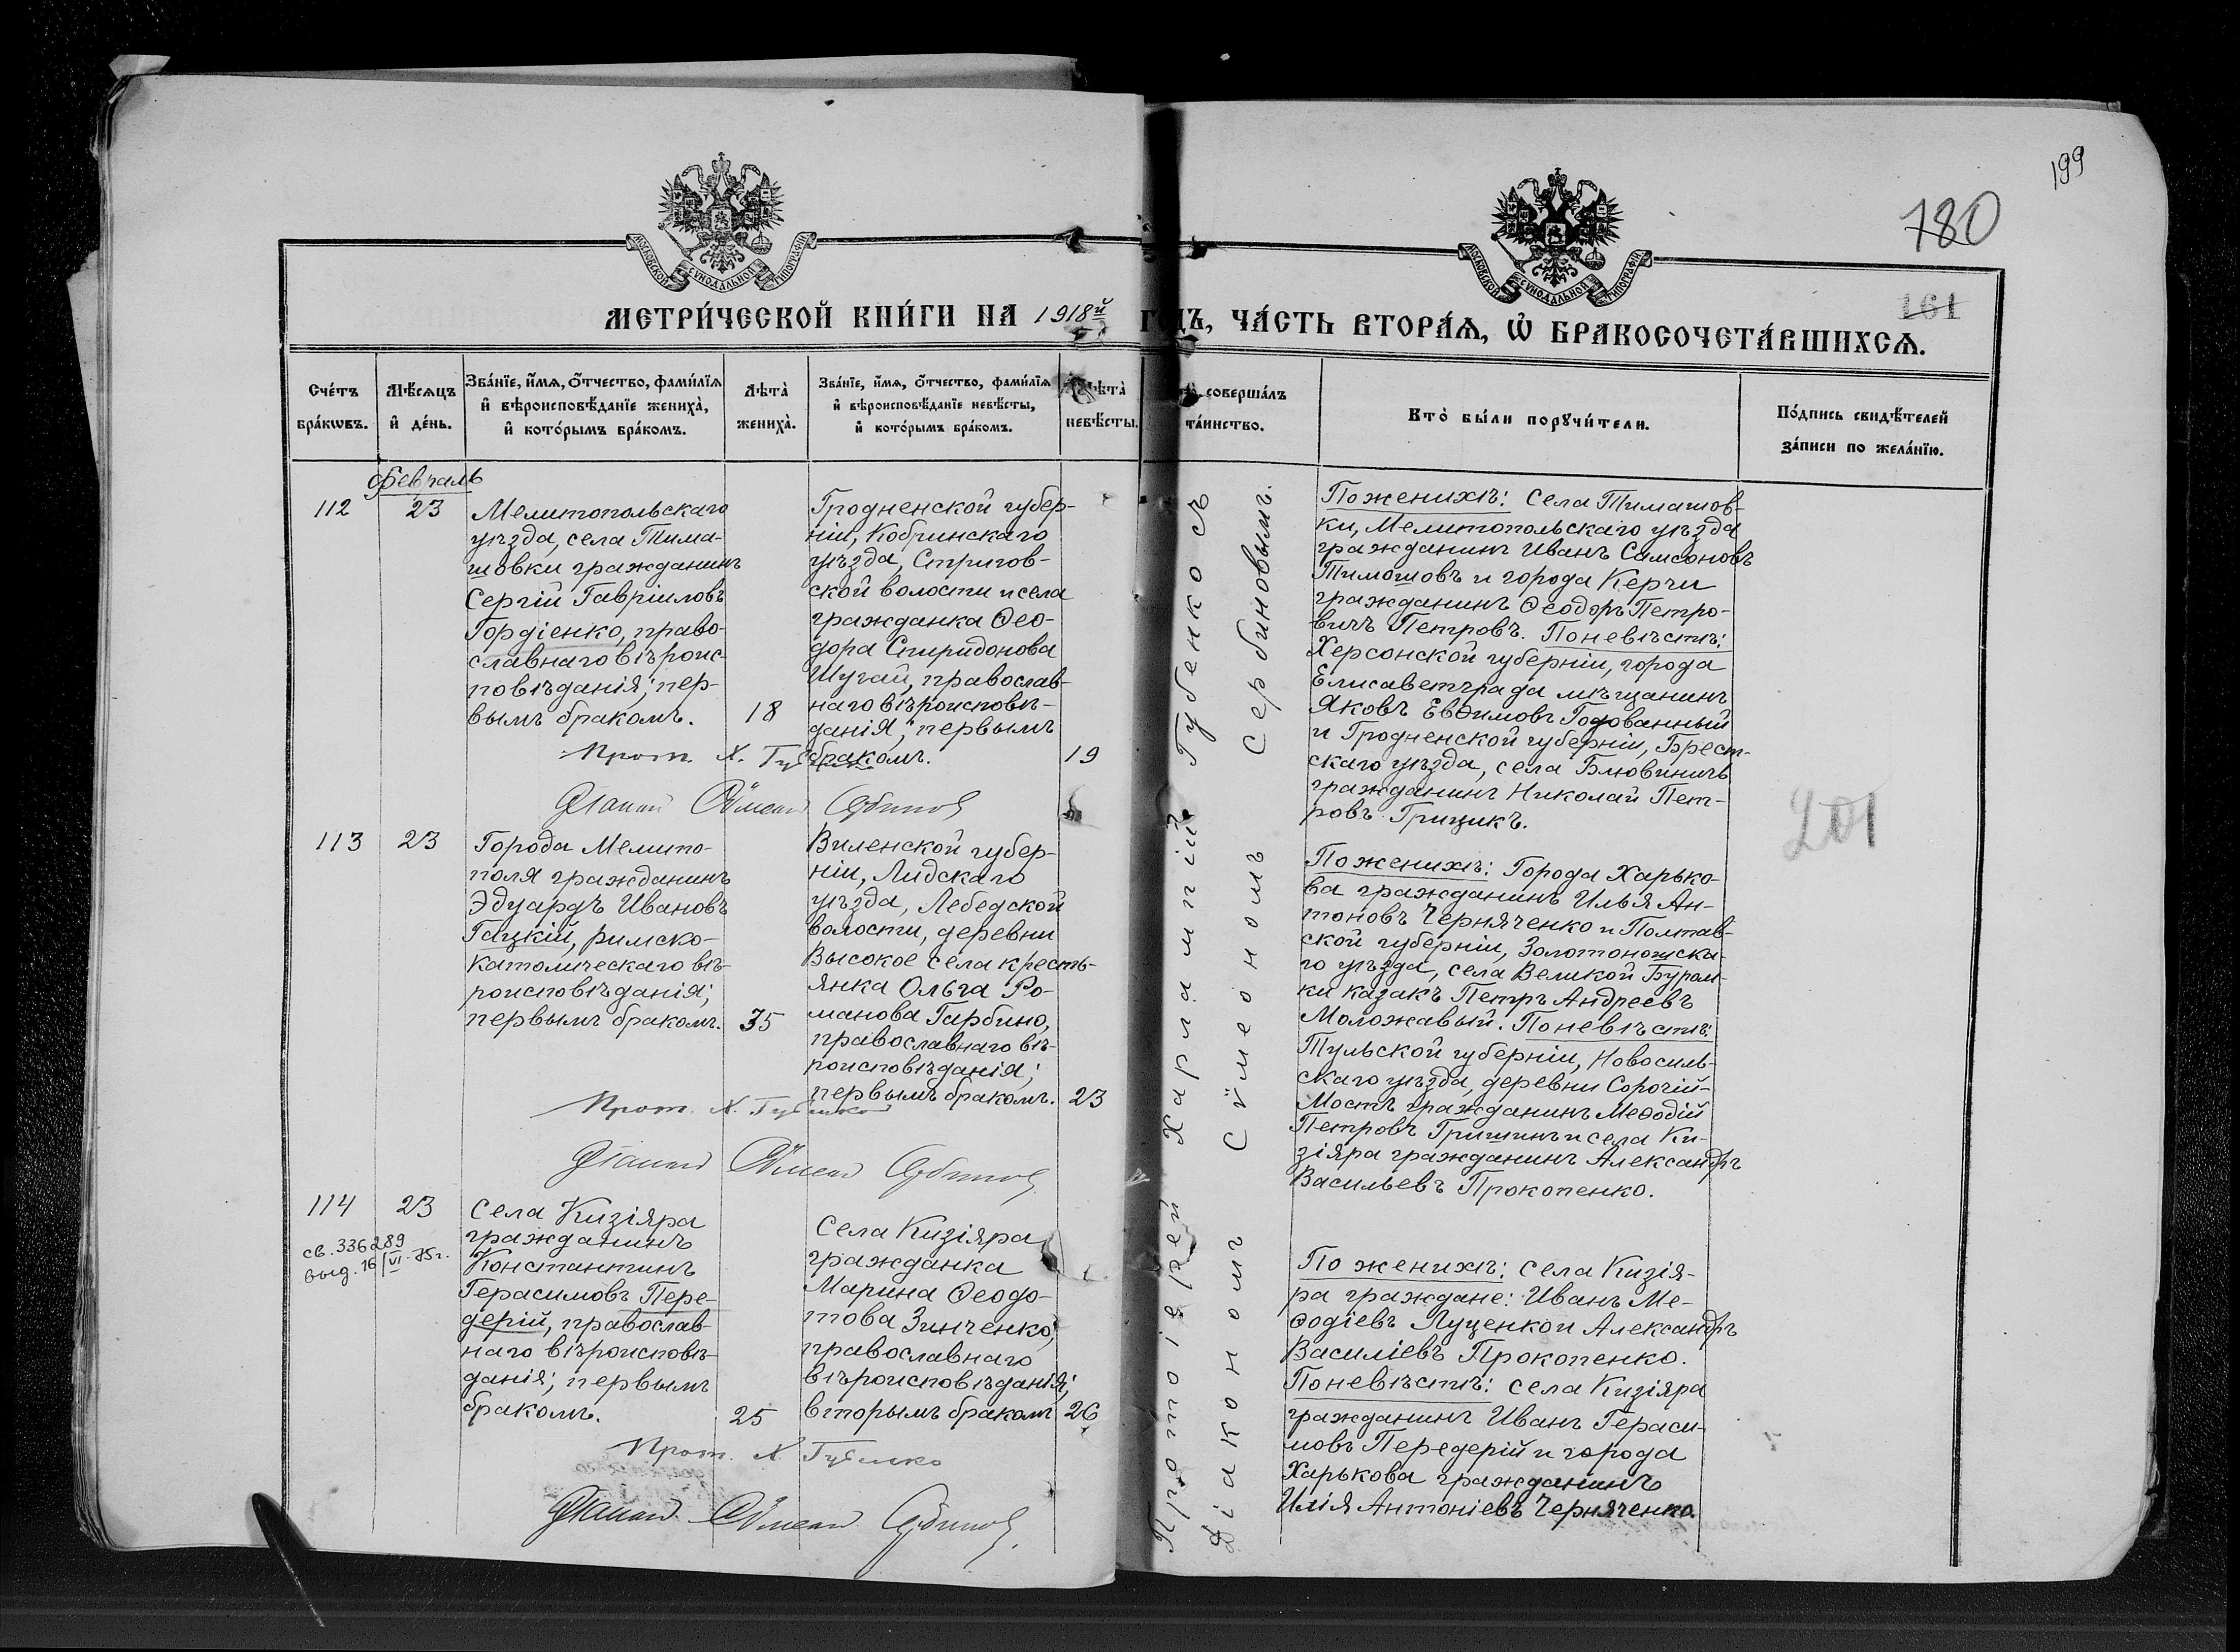 199
780
161
МОСКОВСКОЙ СУНОДАЛЬНОЙ ТИПОГРАФІИ
МОСКОВСКОЙ СУНОДАЛЬНОЙ ТИПОГРАФІИ
МЕТРИ́ЧЕСКОЙ КНИ́ГИ НА 1918й годъ, ЧА́СТЬ ВТОРА́Ѧ, Ѽ БРАКОСОЧЕТА́ВШИХСѦ.
Сче́тъ
бра́кѡвъ.
Мѣ́сѧцъ
и҆ де́нь.
Зва́нїе, и҆́мѧ, ѻ҆́тчество, фами́лїѧ
и҆ вѣроисповѣ́данїе жениха̀,
и҆ кото́рымъ бра́комъ.
Лѣта̀
жениха̀.
Зва́нїе, и҆́мѧ, ѻ҆́тчество, фами́лїѧ
и҆ вѣроисповѣ́данїе невѣ́сты,
и҆ кото́рымъ бра́комъ.
Лѣта̀
невѣ́сты.
соверша́лъ
та́инство.
Кто̀ бы́ли порꙋчи́тели.
По́дпись свидѣ́телей
за́писи по жела́нїю.
Февраль
112
23
Мелитопольскаго
уѣзда, села Тима-
шовки гражданинъ
Сергій Гавріиловъ
Гордіенко, право-
славнаго вѣроис-
повѣданія; пер-
вымъ бракомъ.
18
Гродненской губер-
ніи, Кобринскаго
уѣзда, Стригов-
ской волости и села
гражданка Ѳео-
дора Спиридонова
Шугай, православ-
наго вѣроисповѣ-
данія; первымъ
бракомъ.
19
Прот. Х. Губенко
Діаконъ Сѵмеон Сербиновъ
Протоіерей Харлампій Губенко съ
Діакономъ Сѵмеономъ Сербиновымъ.
По женихѣ: Села Тимашов-
ки, Мелитопольскаго уѣзда
гражданинъ Иванъ Самсоновъ
Тимошовъ и города Керчи
гражданинъ Ѳеодоръ Петро-
вичъ Петровъ. По невѣстѣ:
Херсонской губерніи, города
Елисаветграда мѣщанинъ
Яковъ Евѳимовъ Годованный
и Гродненской губерніи, Брест-
скаго уѣзда, села Блювиничъ
гражданинъ Николай Пет-
ровъ Грицикъ.
201
113
23
Города Мелито-
поля гражданинъ
Эдуардъ Ивановъ
Гацкій, римско-
католическаго вѣ-
роисповѣданія;
первымъ бракомъ.
35
Виленской губер-
ніи, Лидскаго
уѣзда, Лебедской
волости, деревни
Высокое села кресть-
янка Ольга Ро-
манова Гарбино,
православнаго вѣ-
роисповѣданія;
первымъ бракомъ.
23
Прот. Х. Губенко
Діаконъ Сѵмеон Сербиновъ
По женихѣ: Города Харько-
ва гражданинъ Илья Ан-
тоновъ Черняченко и Полтав-
ской губерніи, Золотоношска-
го уѣзда, села Великой Бурам-
ки казакъ Петръ Андреевъ
Моложавый. По невѣстѣ:
Тульской губерніи, Новосиль-
скаго уѣзда, деревни Сорочій-
Мостъ гражданинъ Меѳодій
Петровъ Гришинъ и села Ки-
зіяра гражданинъ Александръ
Васильевъ Прокопенко.
114
23
св. 336289
выд. 16/VI-75г.
Села Кизіяра
гражданинъ
Константинъ
Герасимовъ Пере-
дерій, православ-
наго вѣроисповѣ-
данія; первымъ
бракомъ.
25
Села Кизіяра
гражданка
Марина Ѳеодо-
това Зинченко,
православнаго
вѣроисповѣданія;
вторымъ бракомъ
26
Прот. Х. Губенко
Діаконъ Сѵмеон Сербиновъ.
По женихѣ: Села Кизія-
ра граждане: Иванъ Ме-
ѳодіевъ Луценко и Александръ
Василіевъ Прокопенко.
По невѣстѣ: Села Кизіяра
гражданинъ Иванъ Гераси-
мовъ Передерій и города
Харькова гражданинъ
Илія Антоніевъ Черняченко.